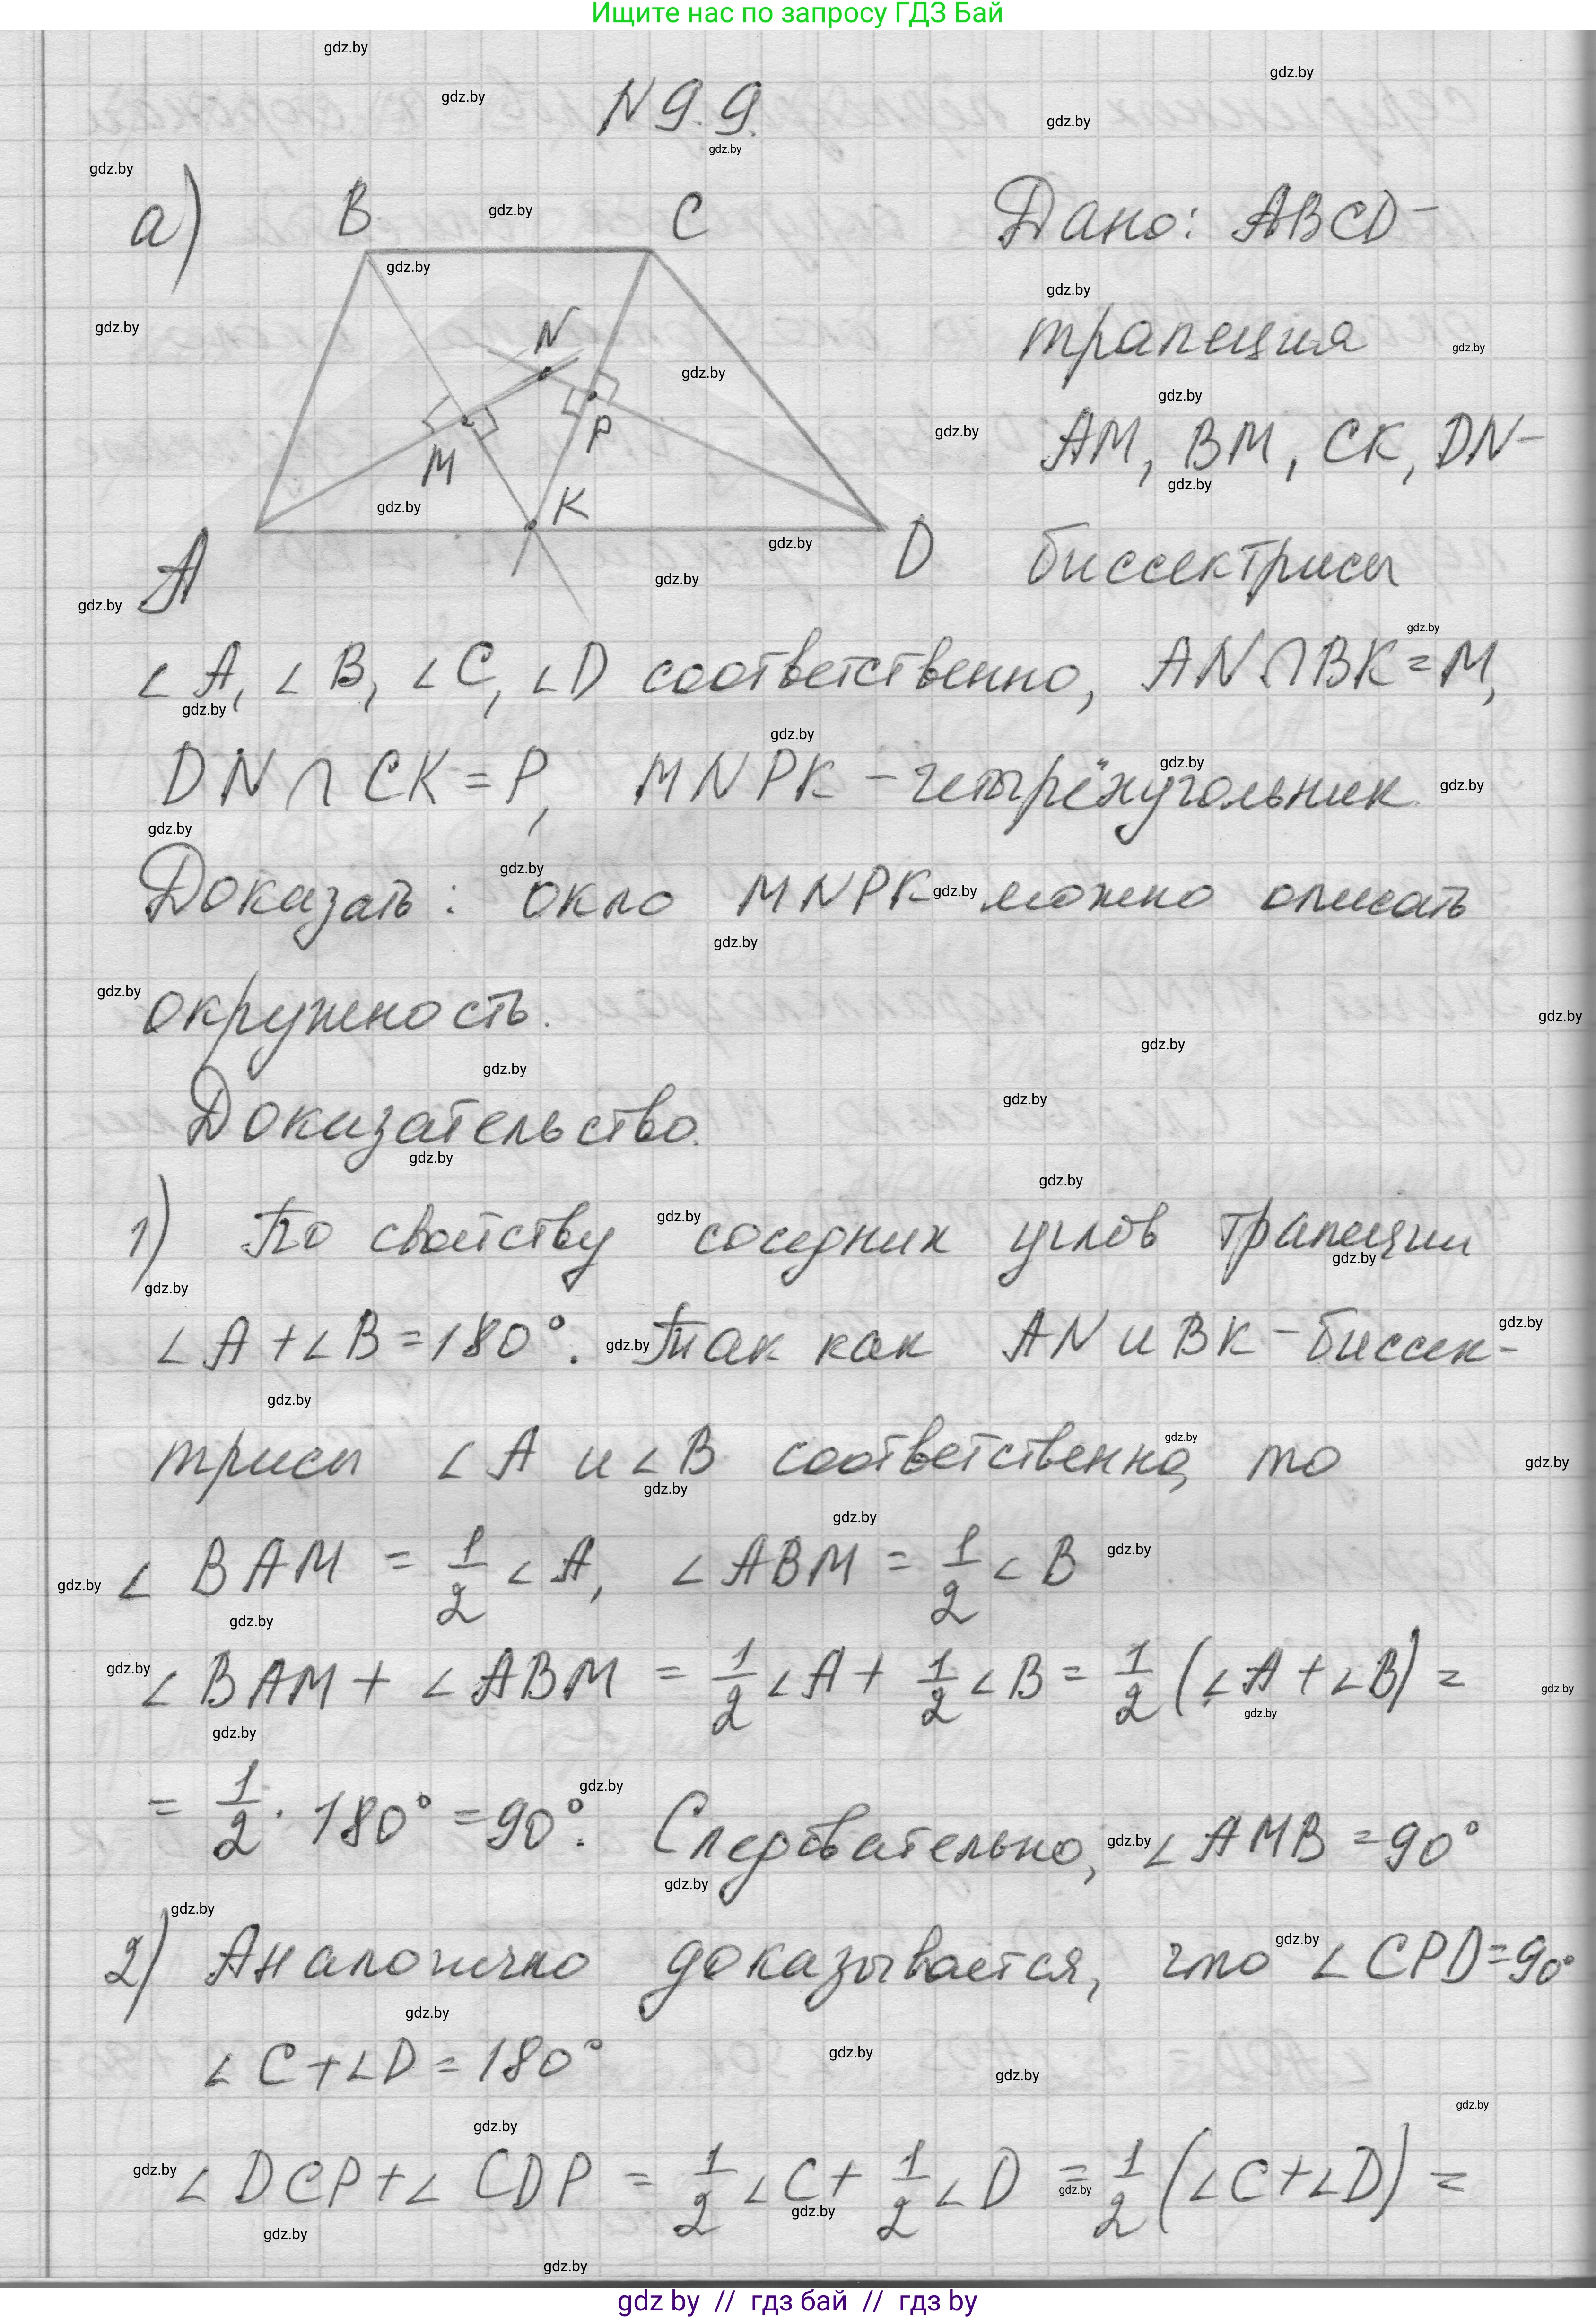 Ищите нас по запросу ГДЗ Бай
N 9.9.
а)
B
C
N
M
P
K
A
D
Дано: ABCD –
трапеция
AM, BM, CK, DN –
биссектрисы
∠A, ∠B, ∠C, ∠D соответственно, AN∩BK=M,
DN ∩ CK = P, MNPK – четырёхугольник
Доказать: около MNPK можно описать
окружность.
Доказательство.
1) По свойству соседних углов трапеции
∠A + ∠B = 180°. Так как AN и BK – биссек-
трисы ∠A и ∠B соответственно, то
∠BAM = 1/2 ∠A, ∠ABM = 1/2 ∠B
∠BAM + ∠ABM = 1/2 ∠A + 1/2 ∠B = 1/2 (∠A + ∠B) =
= 1/2 · 180° = 90°. Следовательно, ∠AMB = 90°
2) Аналогично доказывается, что ∠CPD = 90°
∠C + ∠D = 180°
∠DCP + ∠CDP = 1/2 ∠C + 1/2 ∠D = 1/2 (∠C + ∠D) =
gdz by // гдз бай // гдз by